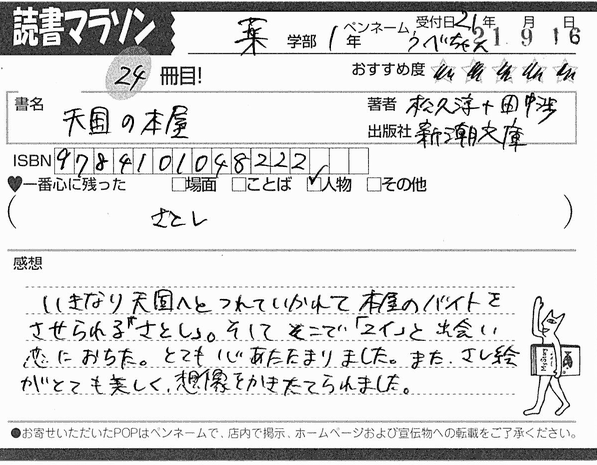 読書マラソン
薬 学部 1年 ペンネーム うべちゃん 受付日 21年 月 日
21.9.16
24 冊目! おすすめ度
書名 天国の本屋
著者 松久淳+田中渉
出版社 新潮文庫
ISBN 9784101048222
♥一番心に残った □場面 □ことば ☑人物 □その他
( さとし )
感想
いきなり天国へとつれていかれて本屋のバイトを
させられる「さとし」。そしてそこで「ユイ」と出会い
恋におちた。とても心あたたまりました。また、さし絵
がとても美しく、想像をかきたてられました。
●お寄せいただいたPOPはペンネームで、店内で掲示、ホームページおよび宣伝物への転載をご了承ください。